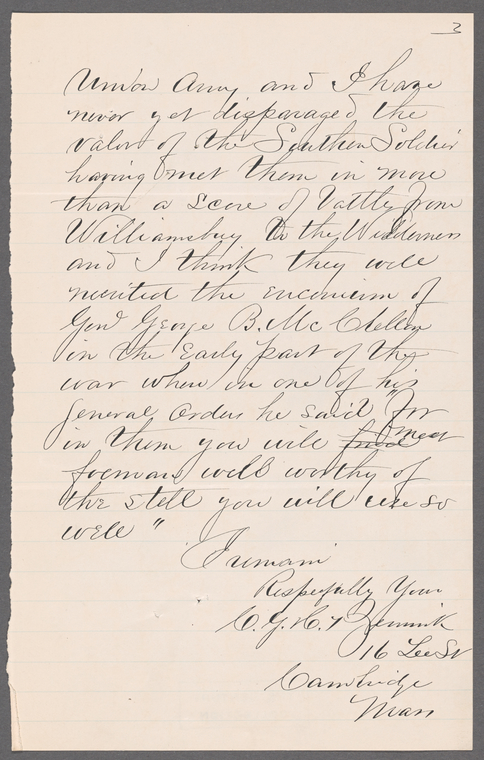 3
Union Army and I have
never yet disparaged the
valor of the Southern Soldier
having met them in more
than a score of battles from
Williamsburg to the Wilderness
and I think they well
merited the encomium of
Genl George B. McClellan
in the Early part of the
war when in one of his
general orders he said "for
in them you will meet
foemans well worthy of
the stell you will use so
well"
I remain
Respefully Your
C. G. H.
16 Lee St
Cambridge
Mass